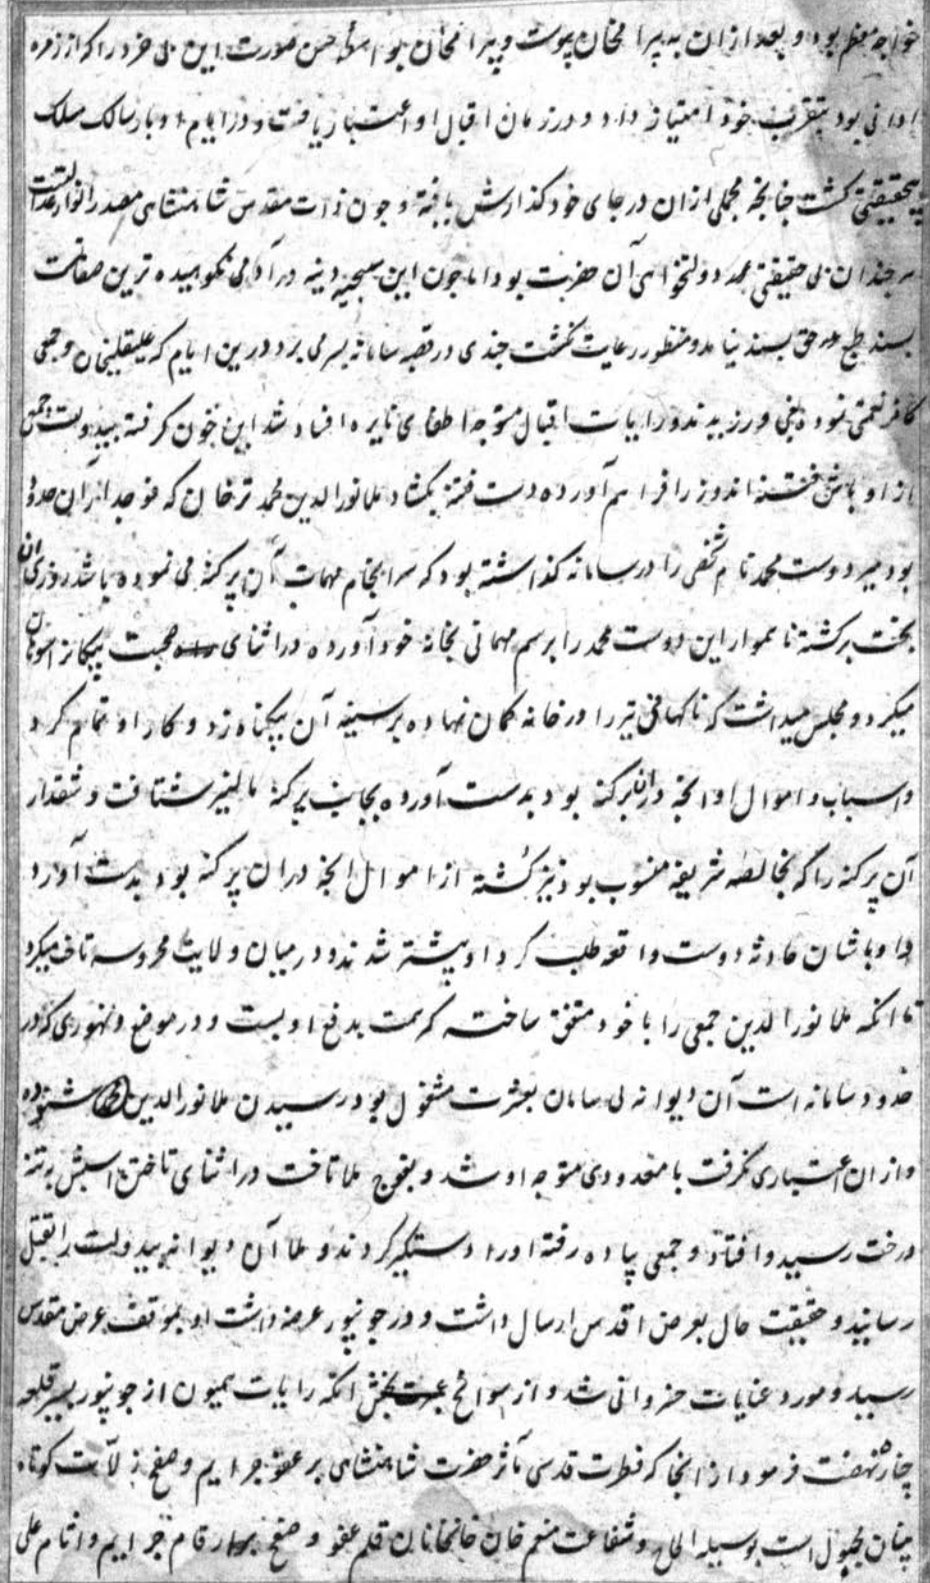 خواجه معظم بود و بعد ازان به بیرامخان پیوست و بیرامخان بواسطهٔ حسن صورت این بی خرد را که از زمره
ادانی بود بتقرب خود امتیاز داد و در زمان اقبال او اعتبار یافت و در ایام ادبار سالک مسلک
بیحقیقتی گشت چنانچه مجملی ازان در جای خود گذارش یافته و چون ذات مقدس شاهنشاهی مصدر انوار عدالتست
هر چند آن بی حقیقتی ممد دولتخواهی آن حضرت بود اما چون این سجیه دنیه در آدمی نکوهیده ترین صفاتست
پسند طبع حق پسند نیامد و منظور رعایت نگشت چندی در قصبه سامانه بسر می برد درین ایام که علیقلیخان و جمعی
کافر نعمتی نموده بغی ورزیدند و رایات اقبال متوجه اطفای نایره فساد شد این خون گرفته بیدولت جمعی
از اوباش فتنه اندوز را فراهم آورده دست فتنه بگشاد ملا نورالدین محمد ترخان که فوجدار آن حدود
بود میر دوست محمد نام شخصی را در سامانه گذاشته بود که سرانجام مهمات آن پرگنه می نموده باشد روزی آن
بخت برگشته ناهموار این دوست محمد را برسم مهمانی بخانه خود آورده در اثنای صحبت پیکانها سوهان
میکرد و مجلس میداشت که ناگهانی تیر را در خانه کمان نهاده بر سینه آن بیگناه زد و کار او تمام کرد
و اسباب و اموال او و انچه دران پرگنه بود بدست آورده بجانب پرگنه مالنیر شتافت و شقدار
آن پرگنه را که بخالصه شریفه منسوب بود نیز کشته از اموال انچه دران پرگنه بود بدست آورد
و اوباشان حادثه دوست واقعه طلب گرد او بیشتر شدند و در میان ولایت محروسه تاخت میکرد
تا انکه ملا نورالدین جمعی را با خود متفق ساخته کمر همت بدفع او بست و در موضع دنهوری که در
حدود سامانه است آن دیوانه بی سامان بعشرت مشغول بود رسیدن ملا نورالدین شنوده
و ازان اعتباری نگرفت با معدودی متوجه او شد و بفوج ملا تاخت در اثنای تاختن اسپش به تنه
درخت رسید و افتاد و جمعی پیاده رفته او را دستگیر کردند و ملا آن دیوانه بیدولت را بقتل
رسانید و حقیقت حال بعرض اقدس ارسال داشت و در جونپور عرضه داشت او بموقف عرض مقدس
رسید و مورد عنایات خسروانی شد و از سوانح عبرت بخش انکه رایات همیون از جونپور بسیر قلعه
چنار نهضت فرمود از انجا که فطرت قدسی مآثر حضرت شاهنشاهی بر عفو جرایم و صفح زلات کوتاه
بینان مجبول است بوسیله الحاح و شفاعت منعم خان خانخانان قلم عفو و صفح بر ارقام جرایم و آثام علی